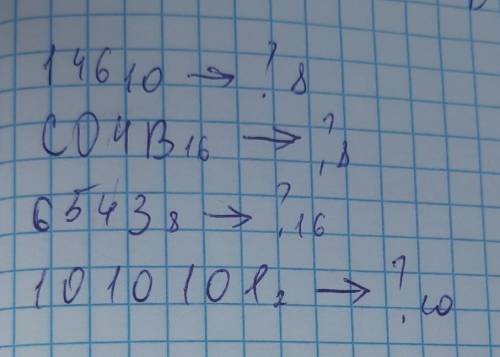 146₁₀ → ?₈
C04B₁₆ → ?₈
6543₈ → ?₁₆
1010101₂ → ?₁₀